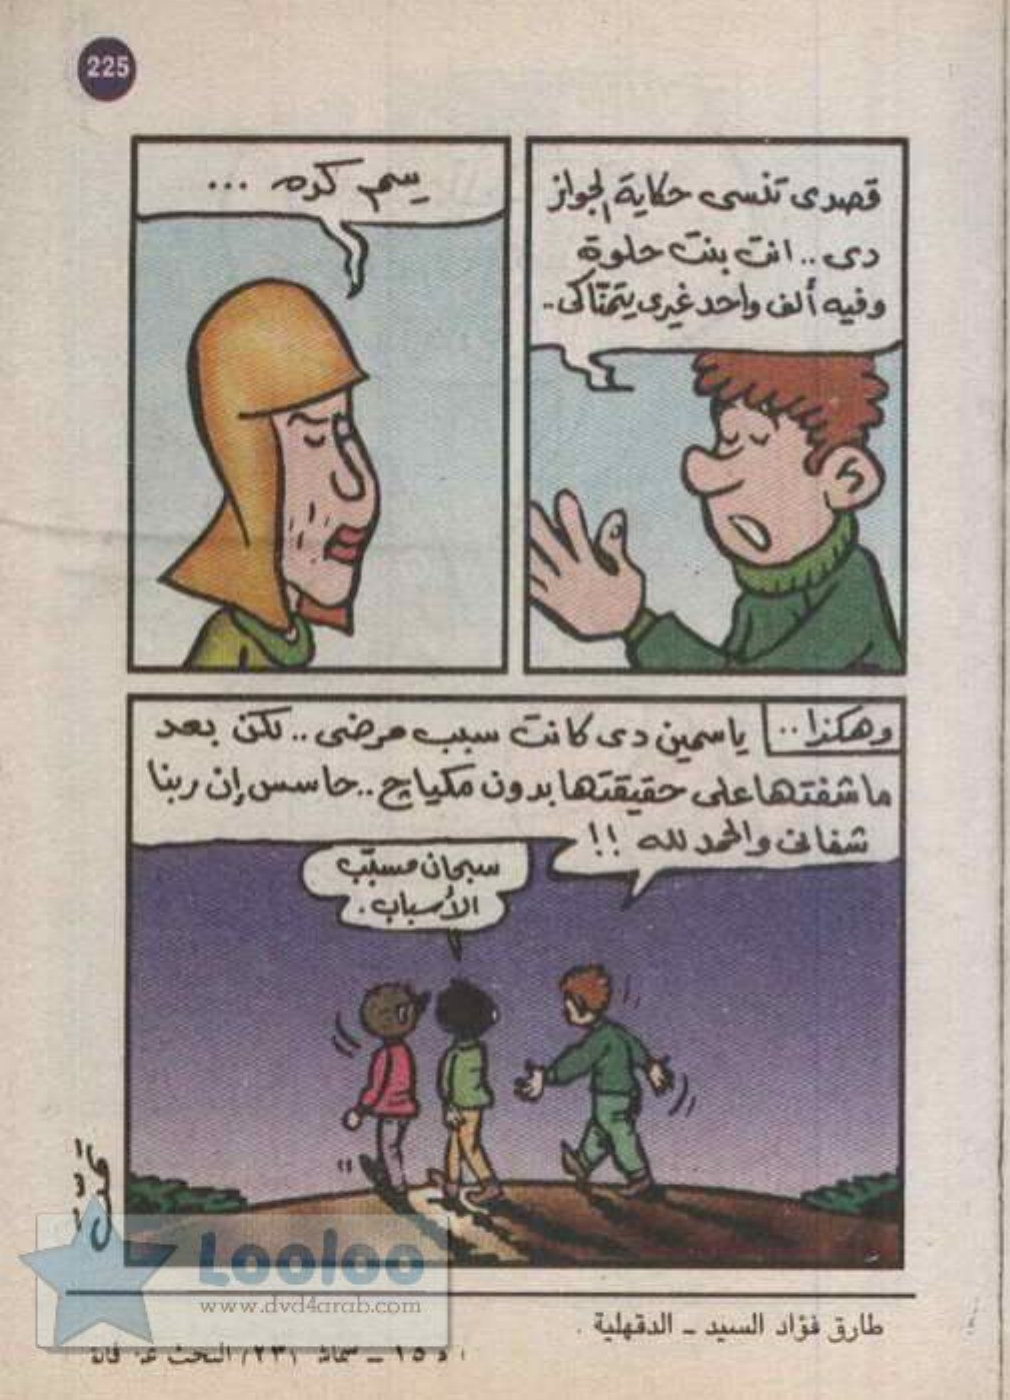 225
قصدى تنسى حكاية الجواز
دى .. انت بنت حلوة
وفيه ألف واحد غيرى يتمنّاكى ..
يسم كده ...
وهكذا ..
ياسمين دى كانت سبب مرضى .. لكن بعد
ما شفتها على حقيقتها بدون مكياج .. حاسس إن ربنا
شفانى والحمد لله !!
سبحان مسبّب
الأسباب .
Looloo
www.dvd4arab.com
طارق فؤاد السيد ــ الدقهلية .